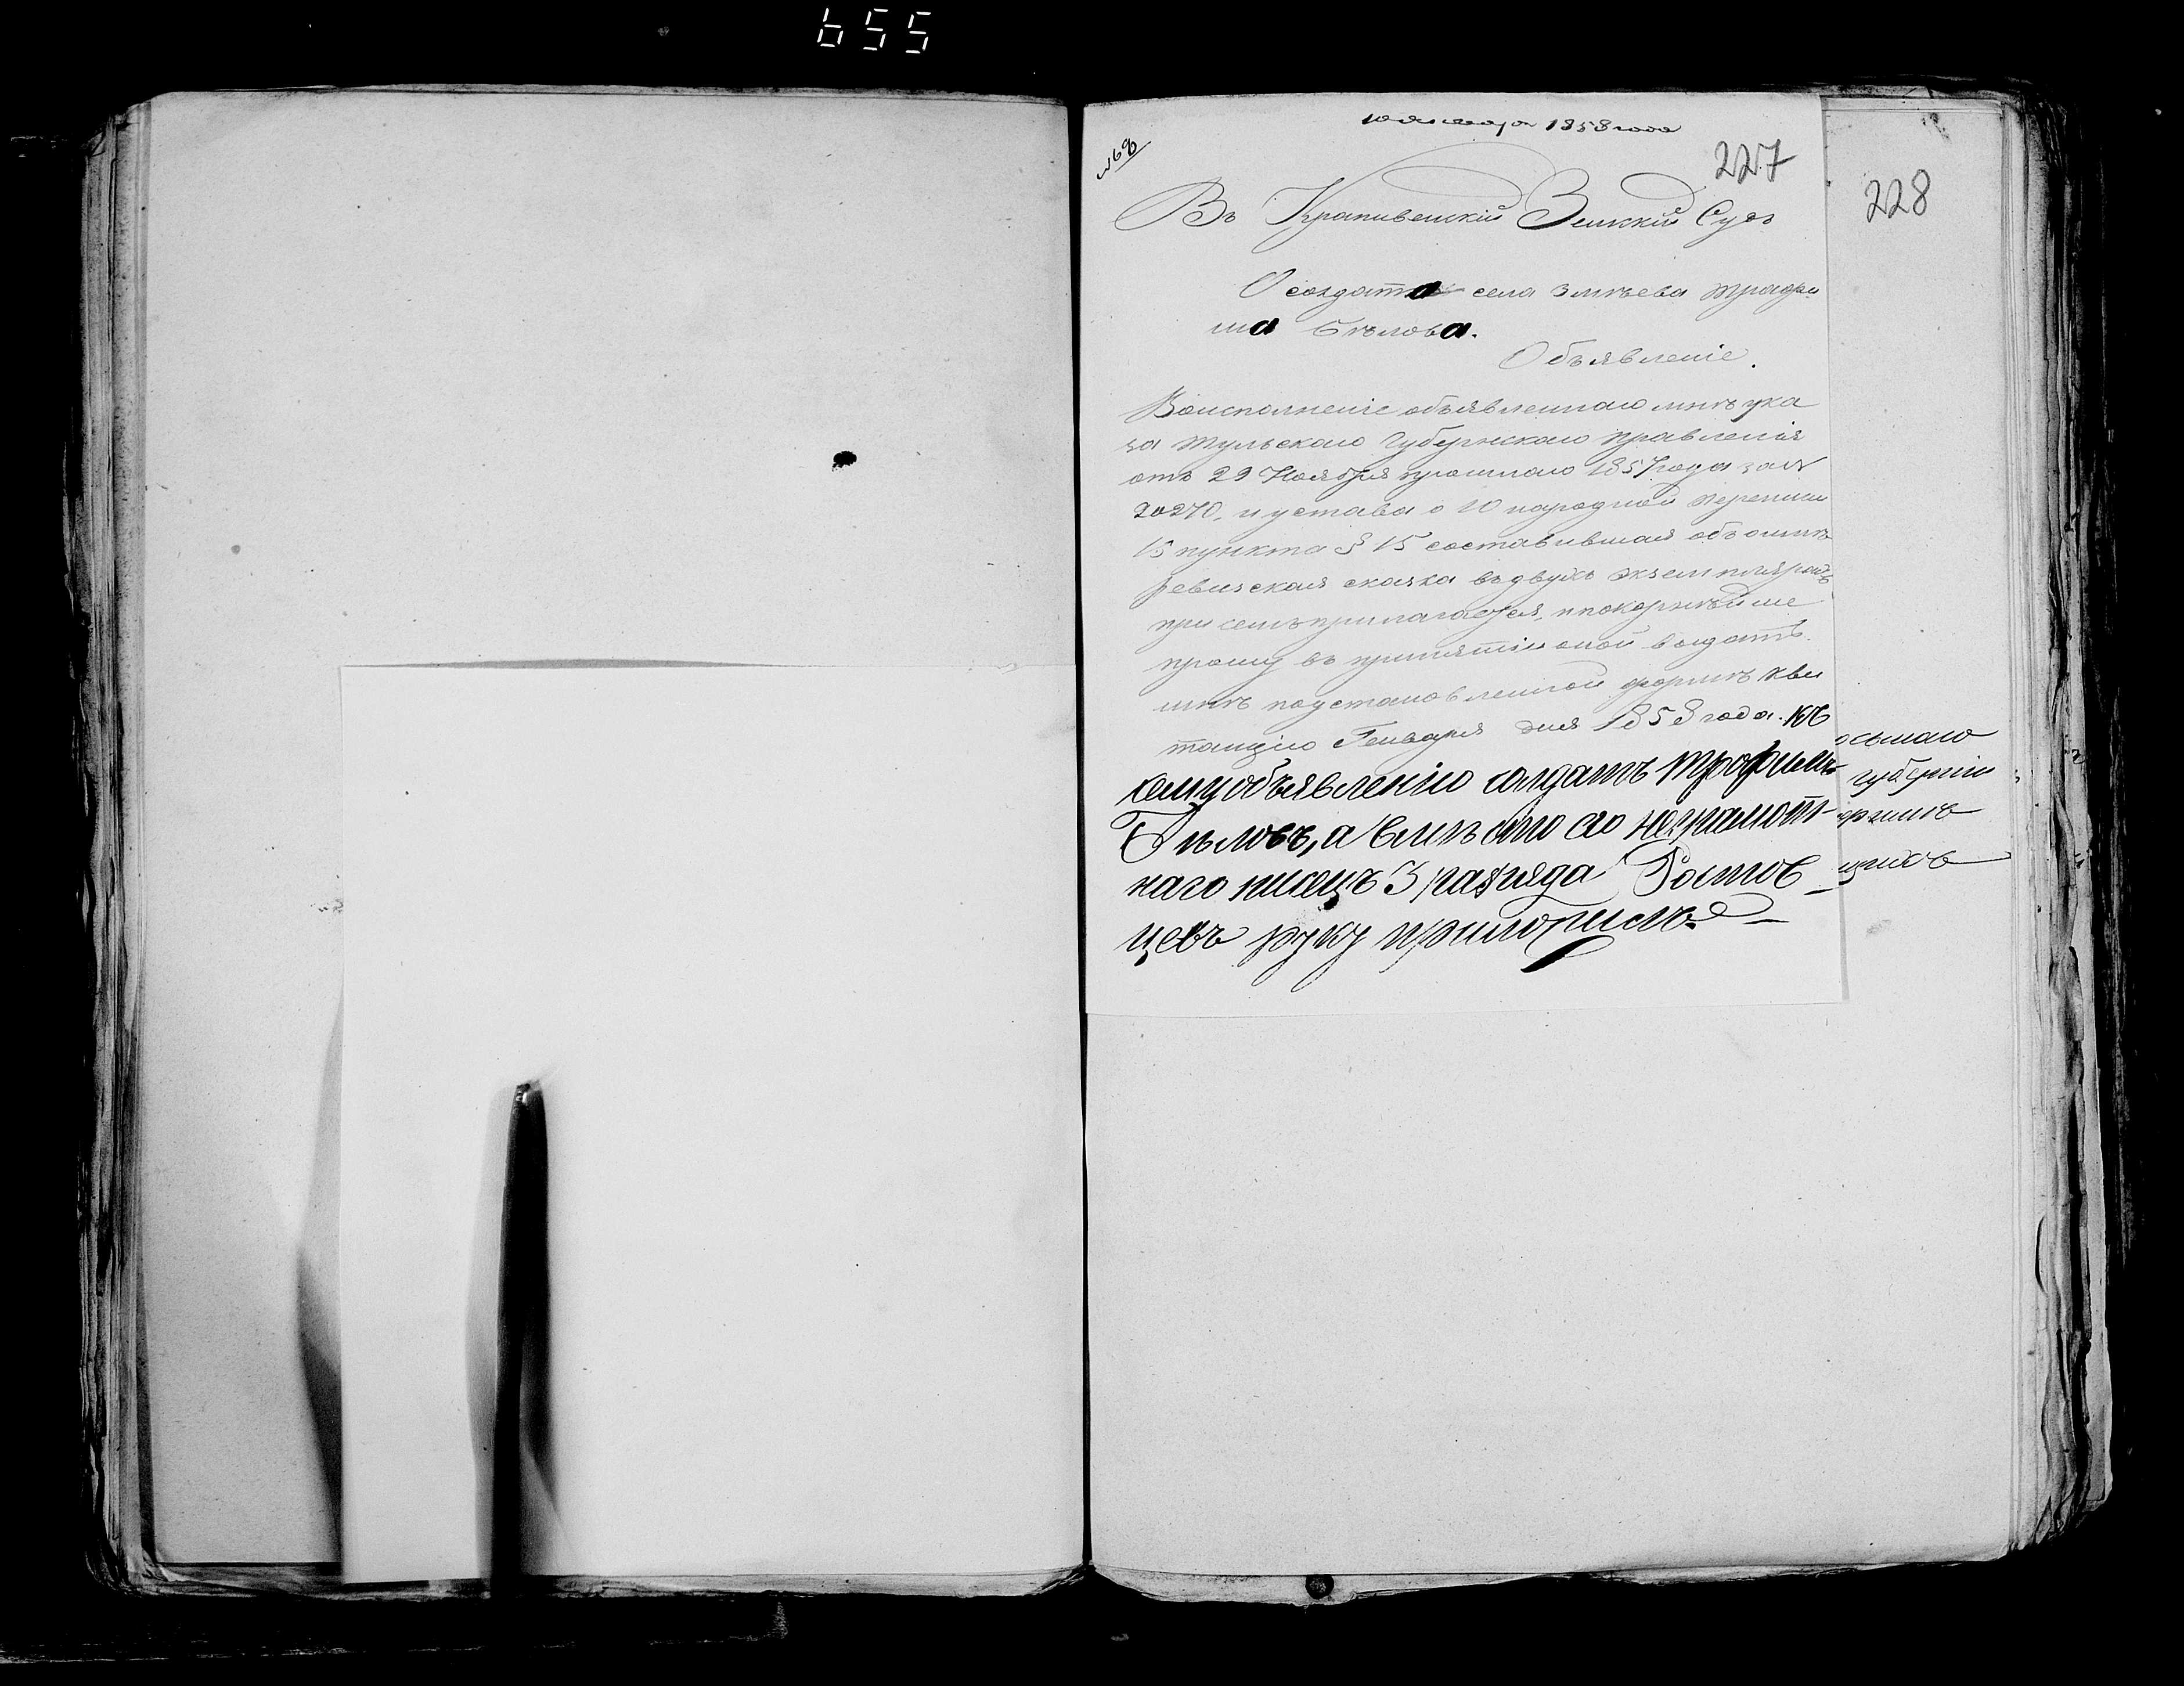 655
10 января 1858 года
№68
227
228
Въ Крапивенскій Земскій Судъ
О солдата села Змѣева Трофи
ма Бѣлова.
Объявленіе.
Воисполненіе объявленнаго мнѣ ука
за Тульскаго Губернскаго Правленія
отъ 29 Ноября прошлаго 1857 года за №
20270, и устава о 10 народной переписи
15 пункта § 15 составившая обо мнѣ
ревизская сказка въ двухъ экземплярахъ
при семъ прилагается, и покорнѣйше
прошу въ принятіи оной выдать
мнѣ поустановленной формѣ кви
танцію Генваря дня 1858 года. Къ
сему объявленію солдатъ Трофимъ
Бѣловъ, а вмѣсто его неграмот-
наго писецъ 3 разряда Ростов
цевъ руку приложилъ
губерніи